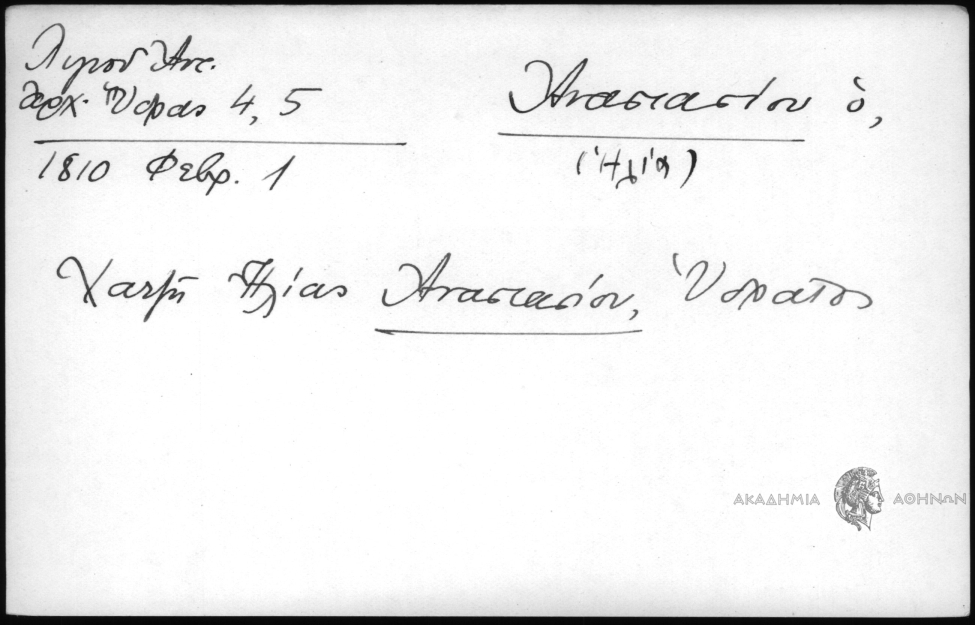 Λιγνοῦ Ἀντ.
Ἀρχ. Ὕδρας 4, 5
1810 Φεβρ. 1
Ἀναστασίου ὁ,
(Ἠλία)
Χατζῆ Ἠλίας Ἀναστασίου, Ὑδραῖος
ΑΚΑΔΗΜΙΑ ΑΘΗΝΩΝ